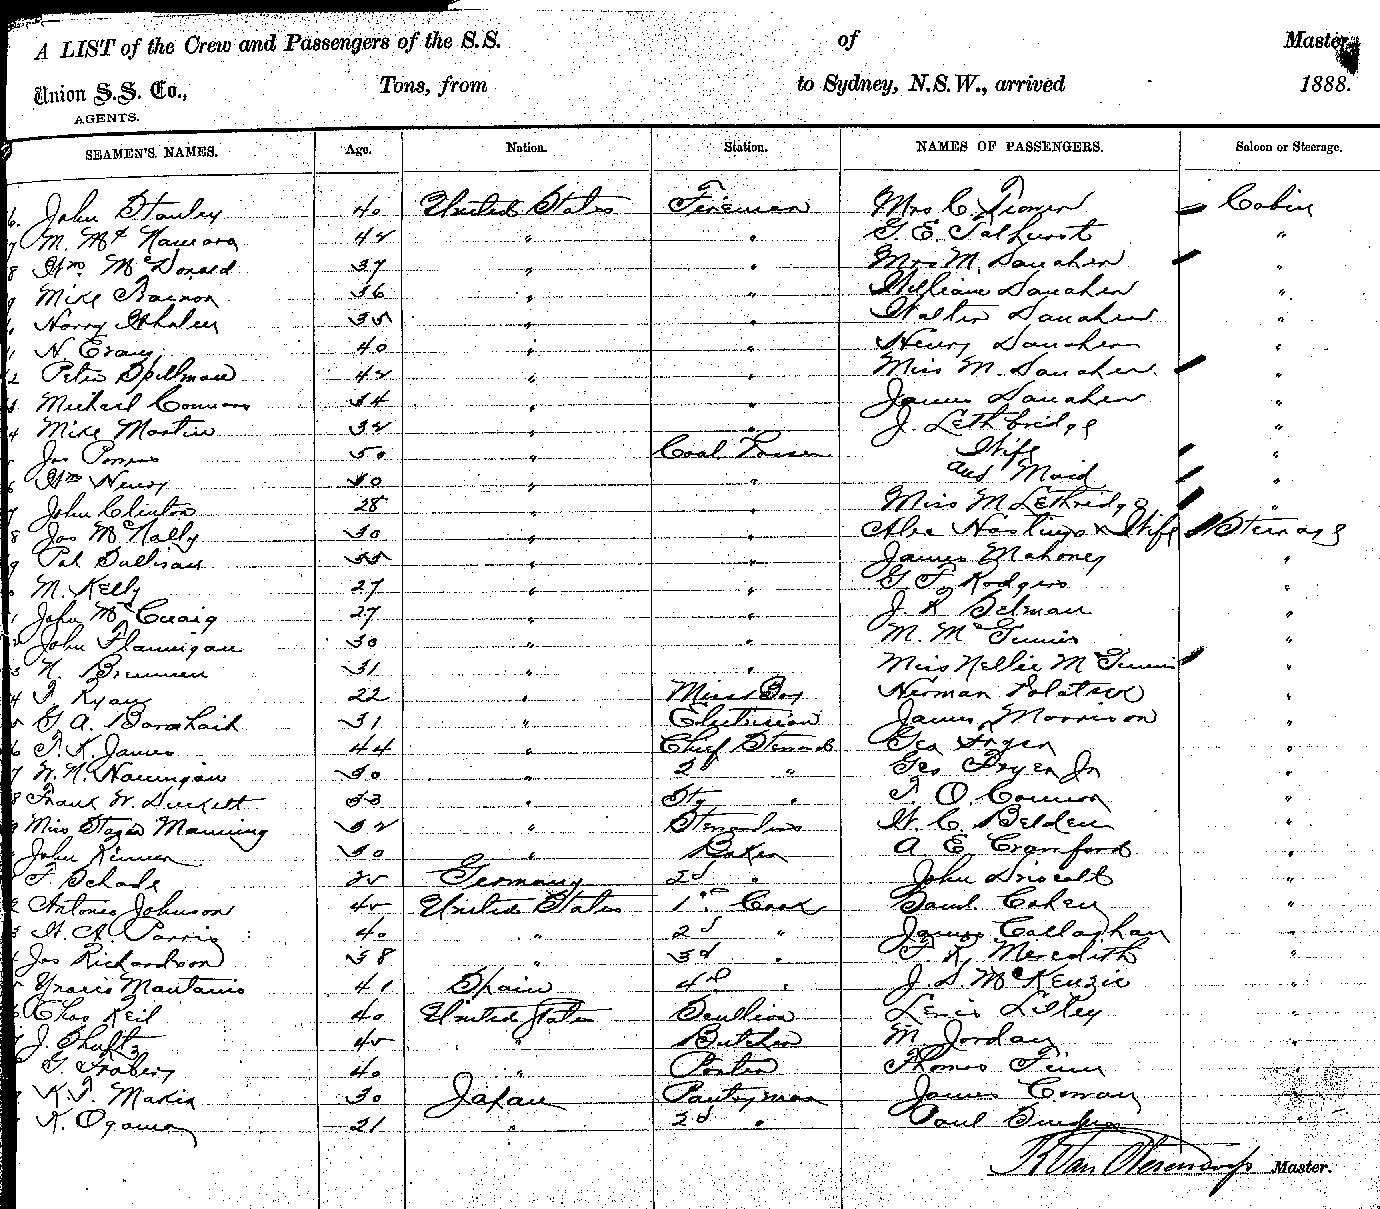 A LIST of the Crew and Passengers of the S.S. of Master,
Union S.S. Co., Tons, from to Sydney, N.S.W., arrived 1888.
AGENTS.
SEAMEN'S NAMES. Age. Nation. Station. NAMES OF PASSENGERS. Saloon or Steerage.
John Stanley 40 United States Fireman Mrs C. Cabin
M. Mc Namara 42 " " G. E. Talhurst "
Wm. McDonald 37 " " Mrs M. Danaher "
Mike 36 " " William Danaher "
Harry Whalen 35 " " Walter Danaher "
N 40 " " Henry Danaher "
Peter Spillman 42 " " Miss M. Danaher "
Michael Connors 34 " " James Danaher "
Mike Martin 32 " " J. Lethbridge "
Jas 50 " Coal Passer Wife "
Wm Henry 30 " " and Maid "
John Clinton 28 " " Miss M Lethridge "
Jas McNally 30 " " Alex Hastings & Wife Steerage
Pat Sullivan 35 " " James Mahoney "
M. Kelly 27 " " G. F. Rodgers "
John McCraig 27 " " J. R Belman "
John Flannigan 30 " " M. McGinnis "
N. Brennen 31 " " Miss Nellie McGinnis "
T. Ryan 22 " Mess Boy Herman "
G. A. 31 " Electrician James Morrison "
T. K. James 44 " Chief Steward Geo Fryer "
30 " 2d " Geo Fryer Jr "
Frank W. 33 " " T. O Connor "
Miss Manning 32 " Stewardess W. C. Belden "
John 30 " Baker A. E. Crawford "
F. Schade 25 Germany 2d " John Driscoll "
Antonio Johnson 45 United States 1st Cook Saml. Cohen "
W. A. Parris 40 " 2d " James Callaghan "
Jas Richardson 38 " 3d " F. K. Meredith "
Mantanio 41 Spain 4th " J. S McKenzie "
Chas Keil 40 United States Scullion Lewis Lilley "
J. Shultz 45 " Butcher M Jordan "
40 " Porter Thomas Finn "
K. T. Makia 30 Japan Pantryman James Cowan "
K. Ogawa 21 " 2d " Paul "
Master.